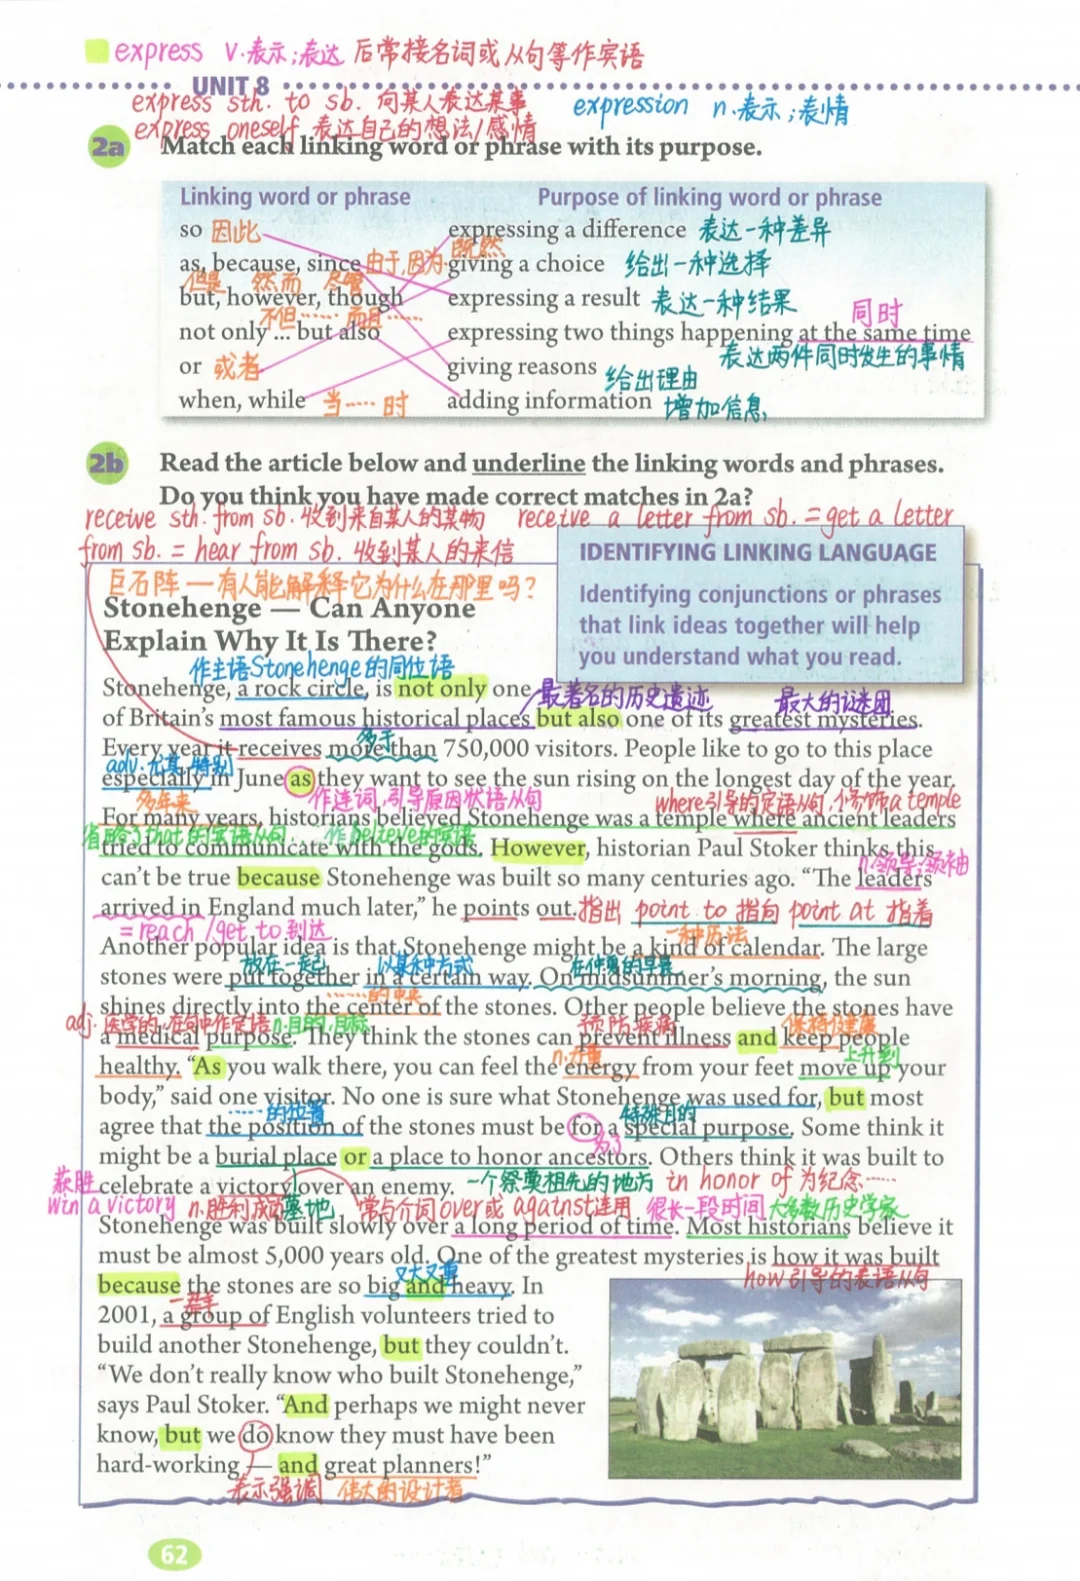 express v.表示;表达 后常接名词或从句等作宾语
UNIT 8
express sth. to sb. 向某人表达某事 expression n.表示;表情
express oneself 表达自己的想法/感情
2a Match each linking word or phrase with its purpose.
Linking word or phrase Purpose of linking word or phrase
so 因此 expressing a difference 表达一种差异
as, because, since 由于,因为,既然 giving a choice 给出一种选择
但是 然而 尽管
but, however, though expressing a result 表达一种结果
不但…… 而且…… 同时
not only ... but also expressing two things happening at the same time
表达两件同时发生的事情
or 或者 giving reasons 给出理由
when, while 当……时 adding information 增加信息
2b Read the article below and underline the linking words and phrases.
Do you think you have made correct matches in 2a?
receive sth. from sb. 收到来自某人的某物 receive a letter from sb. = get a letter
from sb. = hear from sb. 收到某人的来信
IDENTIFYING LINKING LANGUAGE
Identifying conjunctions or phrases
that link ideas together will help
you understand what you read.
巨石阵 — 有人能解释它为什么在那里吗?
Stonehenge — Can Anyone
Explain Why It Is There?
作主语Stonehenge的同位语
Stonehenge, a rock circle, is not only one
最著名的历史遗迹 最大的谜团
of Britain's most famous historical places but also one of its greatest mysteries.
多于
Every year it receives more than 750,000 visitors. People like to go to this place
adv.尤其,特别
especially in June as they want to see the sun rising on the longest day of the year.
多年来 作连词,引导原因状语从句 where引导的定语从句,修饰a temple
For many years, historians believed Stonehenge was a temple where ancient leaders
省略了that的宾语从句,作believe的宾语
tried to communicate with the gods. However, historian Paul Stoker thinks this
n.领导;领袖
can't be true because Stonehenge was built so many centuries ago. “The leaders
arrived in England much later,” he points out. 指出 point to 指向 point at 指着
= reach /get to 到达 一种历法
Another popular idea is that Stonehenge might be a kind of calendar. The large
放在一起 以某种方式 在仲夏的早晨
stones were put together in a certain way. On midsummer's morning, the sun
……的中央
shines directly into the center of the stones. Other people believe the stones have
adj.医学的,在句中作定语 n.目的,目标 预防疾病 保持健康
a medical purpose. They think the stones can prevent illness and keep people
n.力量 上升到
healthy. “As you walk there, you can feel the energy from your feet move up your
body,” said one visitor. No one is sure what Stonehenge was used for, but most
……的位置 特殊目的
agree that the position of the stones must be for a special purpose. Some think it
为了
might be a burial place or a place to honor ancestors. Others think it was built to
celebrate a victory over an enemy. 一个祭奠祖先的地方 in honor of 为纪念……
获胜
win a victory n.胜利,成功 墓地 常与介词over或against连用 很长一段时间 大多数历史学家
Stonehenge was built slowly over a long period of time. Most historians believe it
must be almost 5,000 years old. One of the greatest mysteries is how it was built
又大又重 how引导的表语从句
because the stones are so big and heavy. In
一群
2001, a group of English volunteers tried to
build another Stonehenge, but they couldn't.
“We don't really know who built Stonehenge,”
says Paul Stoker. “And perhaps we might never
know, but we do know they must have been
hard-working — and great planners!”
表示强调 伟大的设计者
62